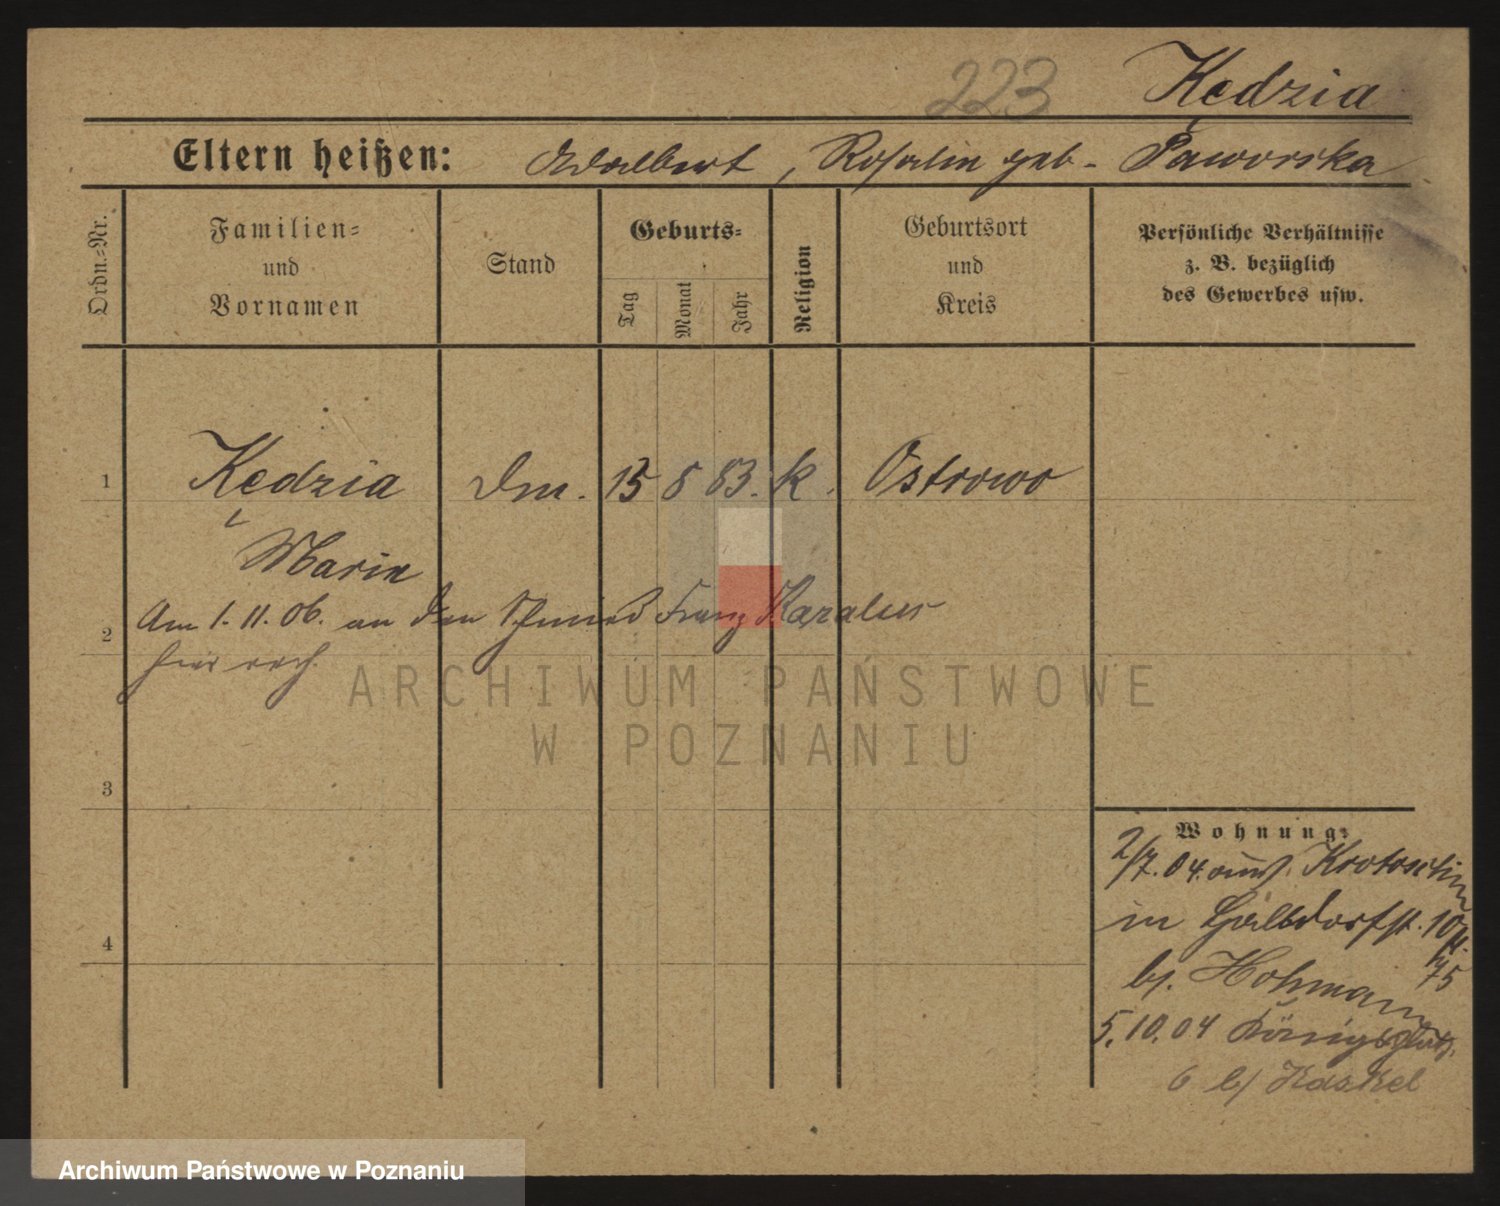 223 Kędzia
Eltern heißen: Adalbert, Rosalie geb. Jaworska
Ordn.-Nr.
Familien-
und
Vornamen
Stand
Geburts-
Tag
Monat
Jahr
Religion
Geburtsort
und
Kreis
Persönliche Verhältnisse
z. B. bezüglich
des Gewerbes usw.
1 Kędzia Dm. 15 8 83. k. Ostrowo
Marie
Am 1. 11. 06. an den Schmied Franz
2
hier
3
4
Wohnung:
2/7. 04. Krotoschin
in 10
75
bj.
5. 10. 04 Königsplatz
6 bj Kaskel
ARCHIWUM PAŃSTWOWE
W POZNANIU
Archiwum Państwowe w Poznaniu